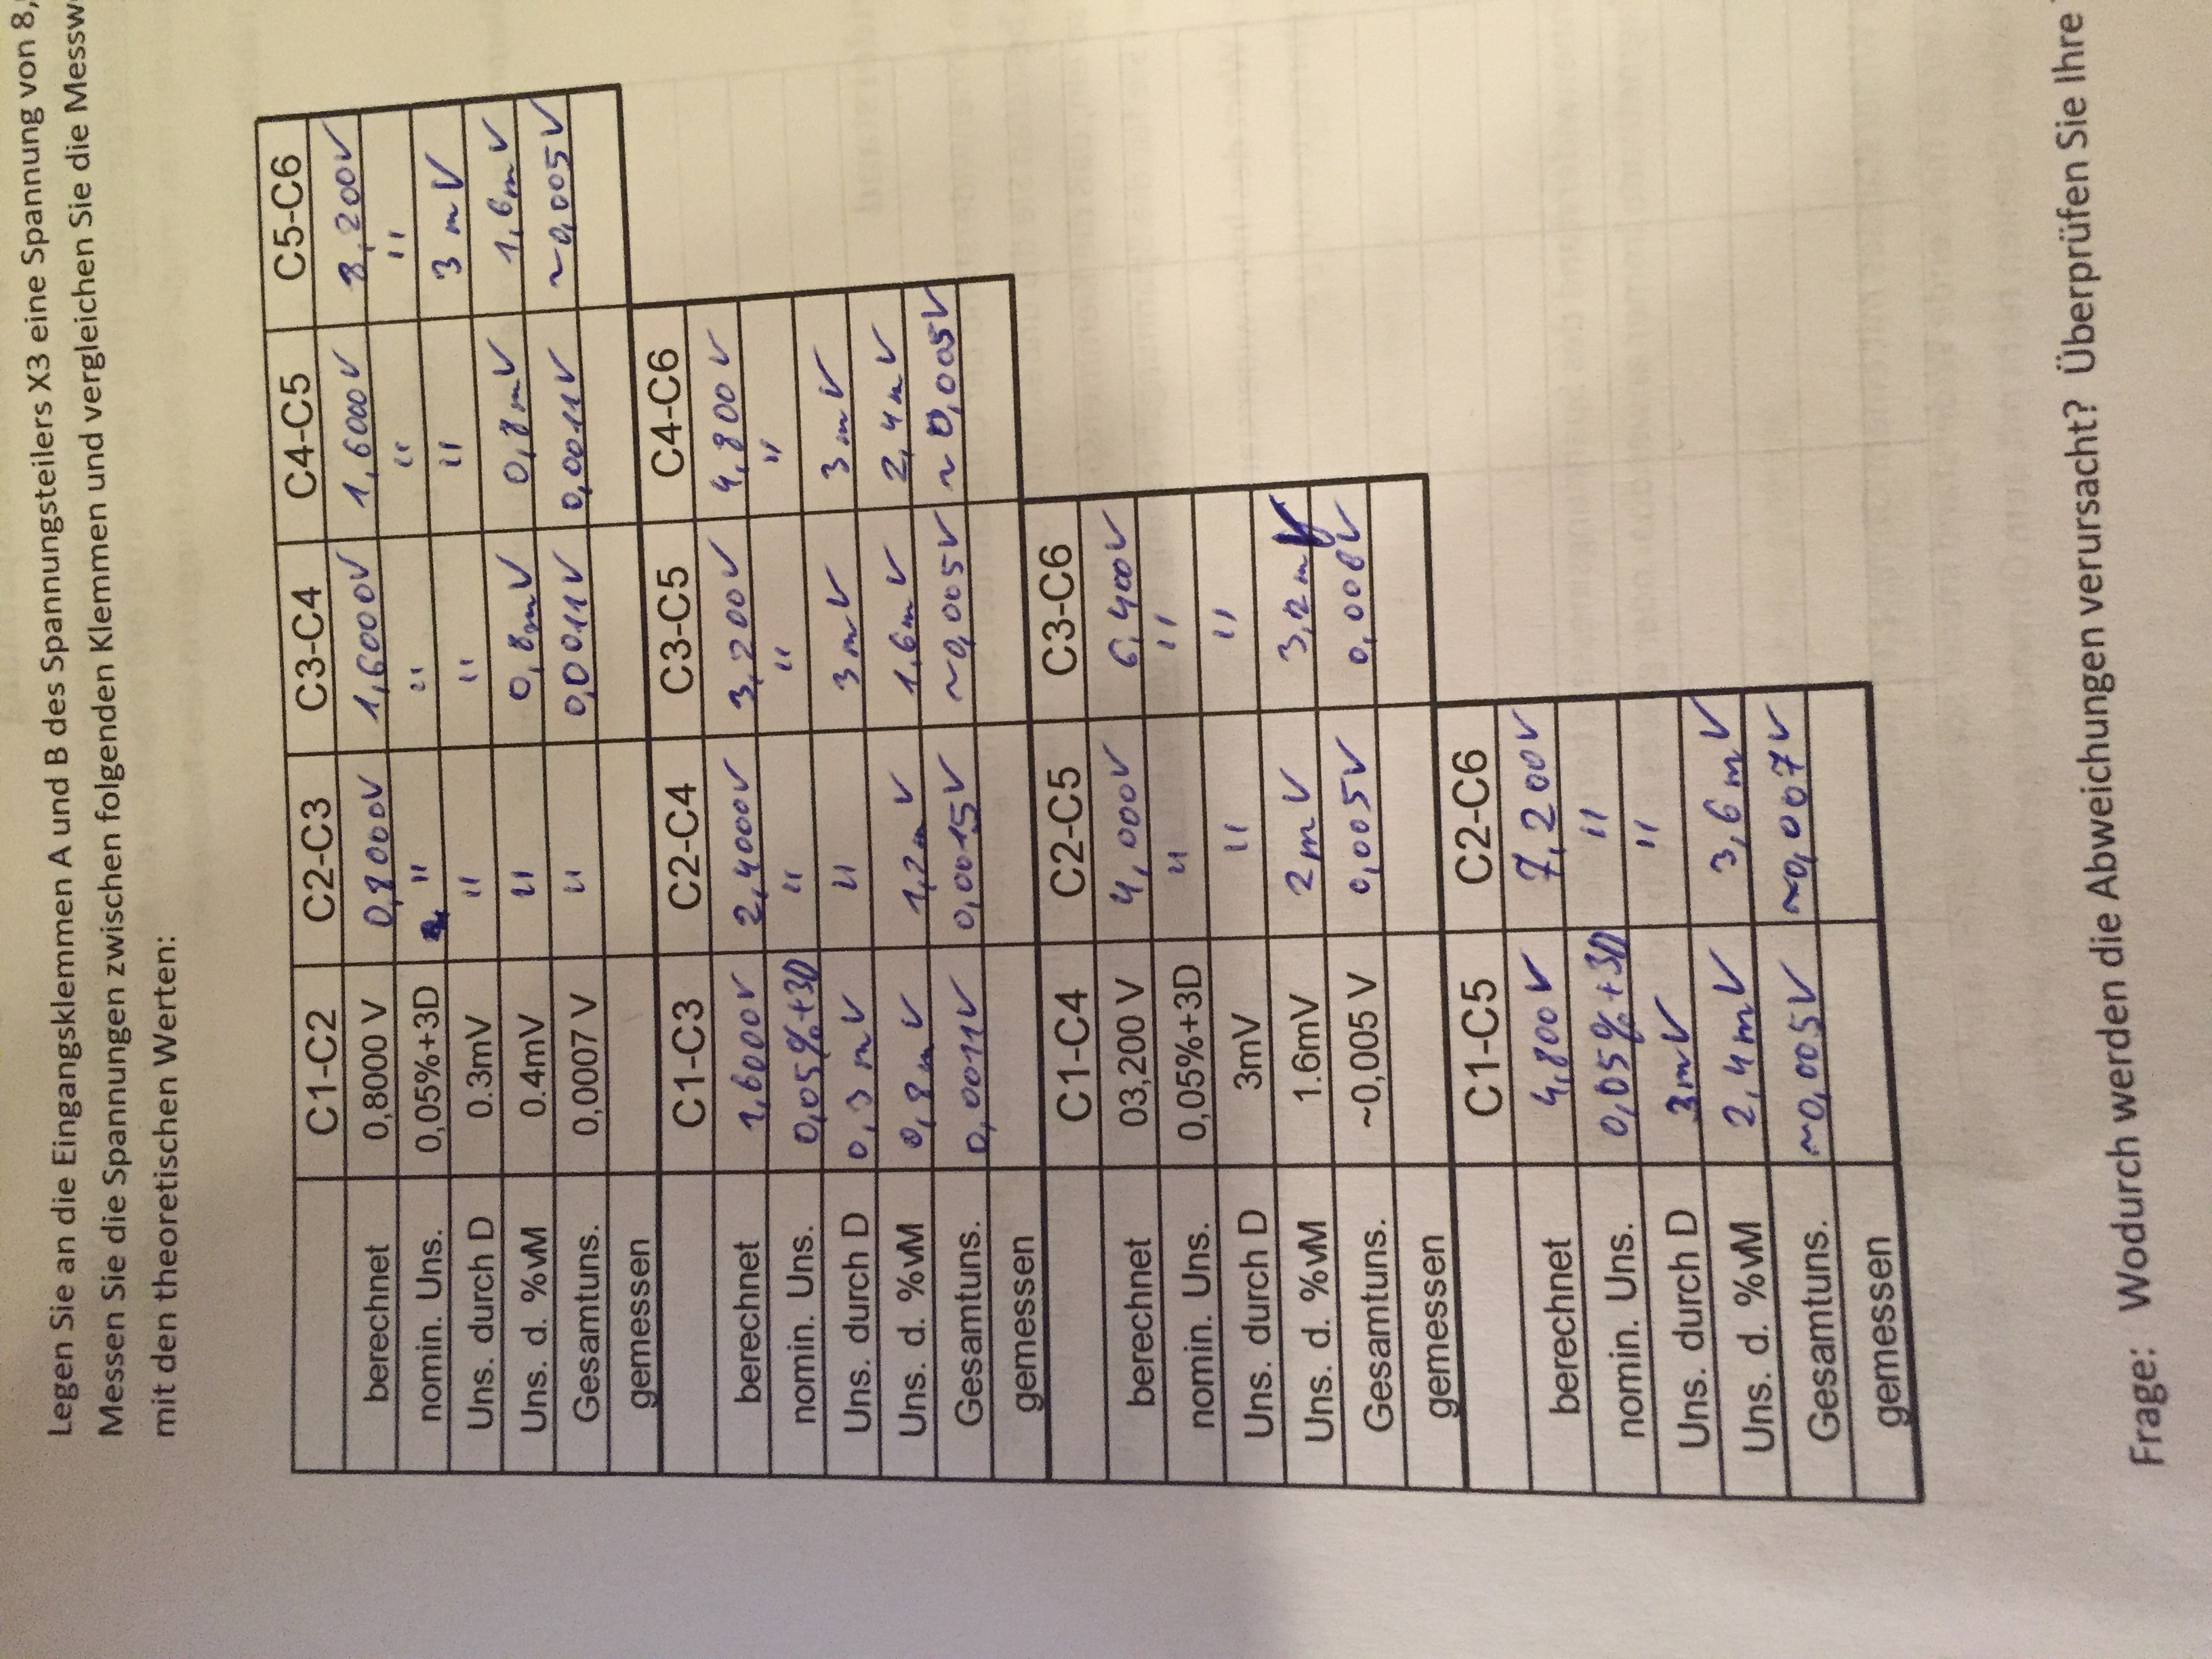 Legen Sie an die Eingangsklemmen A und B des Spannungsteilers X3 eine Spannung von 8,
Messen Sie die Spannungen zwischen folgenden Klemmen und vergleichen Sie die Messw
mit den theoretischen Werten:
C1-C2 C2-C3 C3-C4 C4-C5 C5-C6
berechnet 0,8000 V 0,8000V 1,6000V 1,6000V 3,200V
nomin. Uns. 0,05%+3D " " " "
Uns. durch D 0.3mV " " " 3 mV
Uns. d. %vM 0.4mV " 0,8mV 0,8mV 1,6mV
Gesamtuns. 0,0007 V " 0,0011V 0,0011V ~0,005V
gemessen
C1-C3 C2-C4 C3-C5 C4-C6
berechnet 1,6000V 2,4000V 3,200V 4,800V
nomin. Uns. 0,05%+3D " " "
Uns. durch D 0,3mV " 3mV 3mV
Uns. d. %vM 0,8mV 1,2mV 1,6mV 2,4mV
Gesamtuns. 0,0011V 0,0015V ~0,005V ~0,005V
gemessen
C1-C4 C2-C5 C3-C6
berechnet 03,200 V 4,000V 6,400V
nomin. Uns. 0,05%+3D " "
Uns. durch D 3mV " "
Uns. d. %vM 1.6mV 2mV 3,2mV
Gesamtuns. ~0,005 V 0,005V 0,006V
gemessen
C1-C5 C2-C6
berechnet 4,800V 7,200V
nomin. Uns. 0,05%+3D "
Uns. durch D 3mV "
Uns. d. %vM 2,4mV 3,6mV
Gesamtuns. ~0,005V ~0,007V
gemessen
Frage: Wodurch werden die Abweichungen verursacht? Überprüfen Sie Ihre